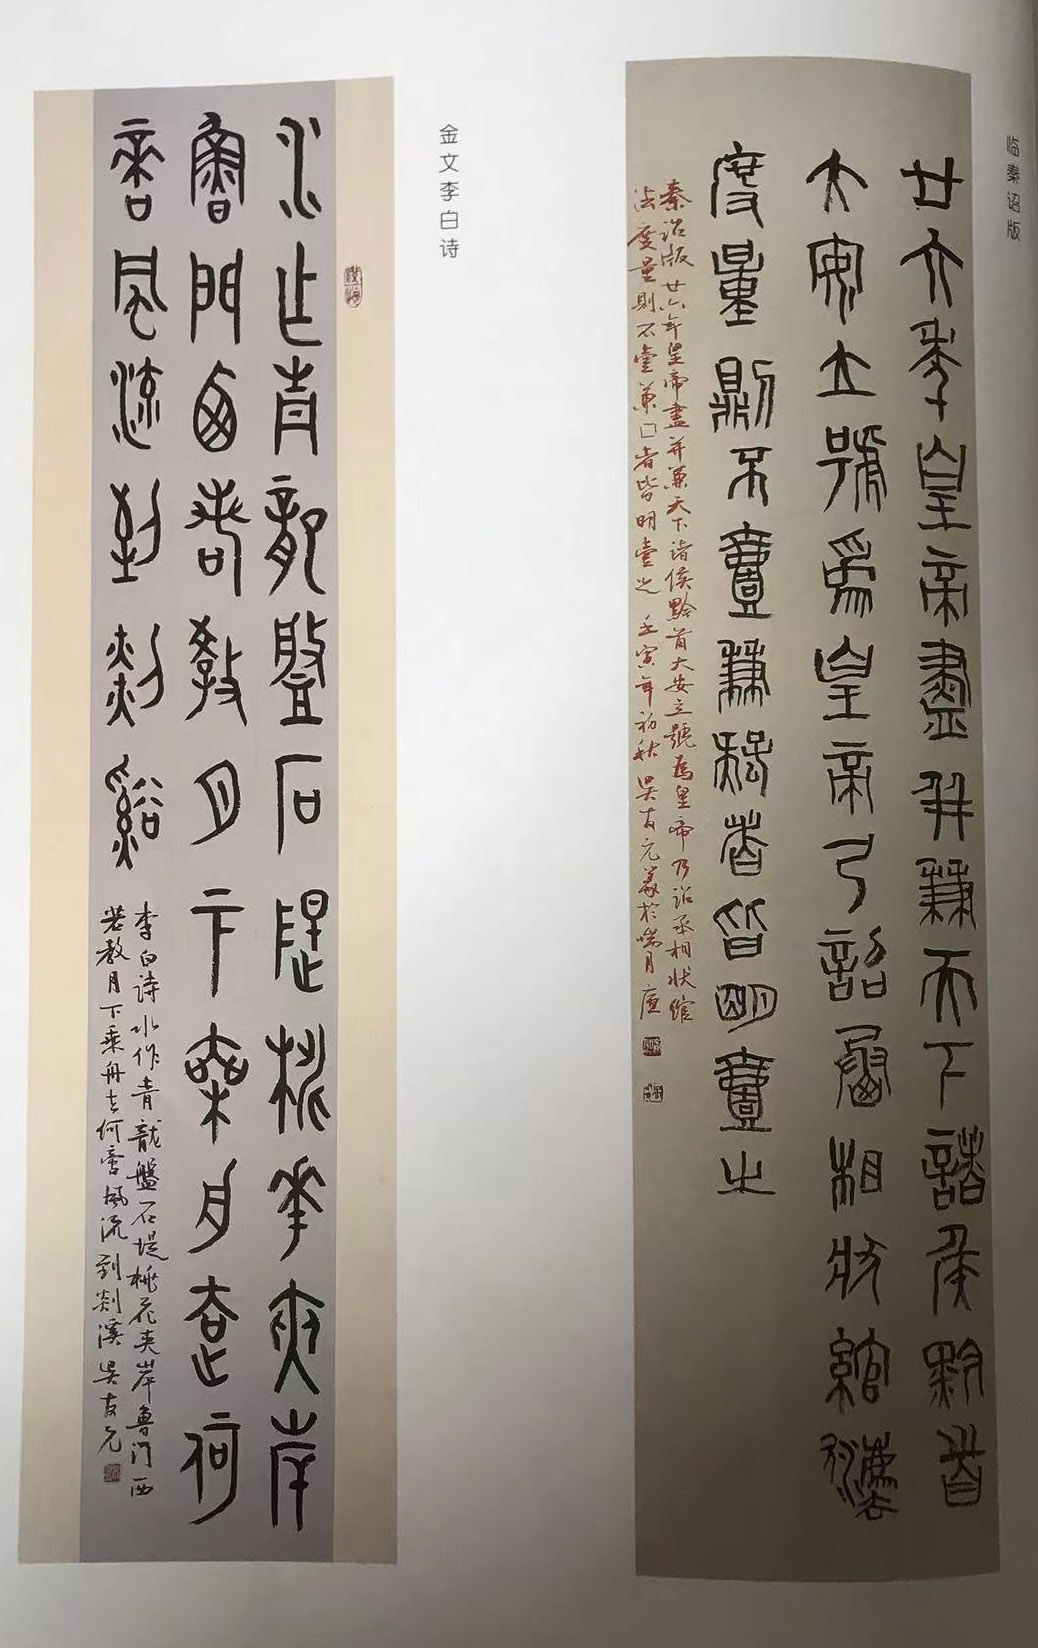 临秦诏版
廿六年皇帝盡并兼天下諸侯黔首
大安立號為皇帝乃詔丞相狀綰法
度量則不壹兼疑者皆明壹之
秦诏版廿六年皇帝盡并兼天下諸侯黔首大安立號為皇帝乃詔丞相状綰
法度量則不壹兼□者皆明壹之 壬寅年初秋 吴友元篆於喘月廬
金文李白诗
水作青龍盤石堤桃華夾岸
魯門西若教月下乘舟去何
啻風流到剡谿
李白诗水作青龍盤石堤桃花夹岸鲁门西
若教月下乘舟去何啻風流到剡溪 吴友元